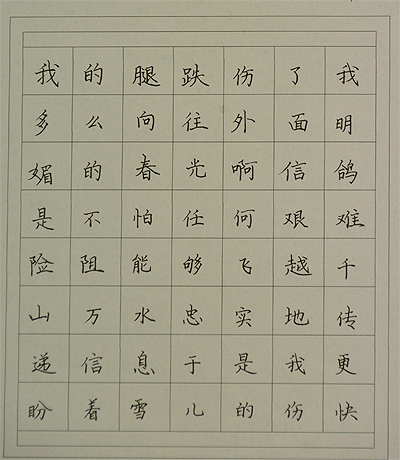 我的腿跌伤了我
多么向往外面明
媚的春光啊信鸽
是不怕任何艰难
险阻能够飞越千
山万水忠实地传
递信息于是我更
盼着雪儿的伤快